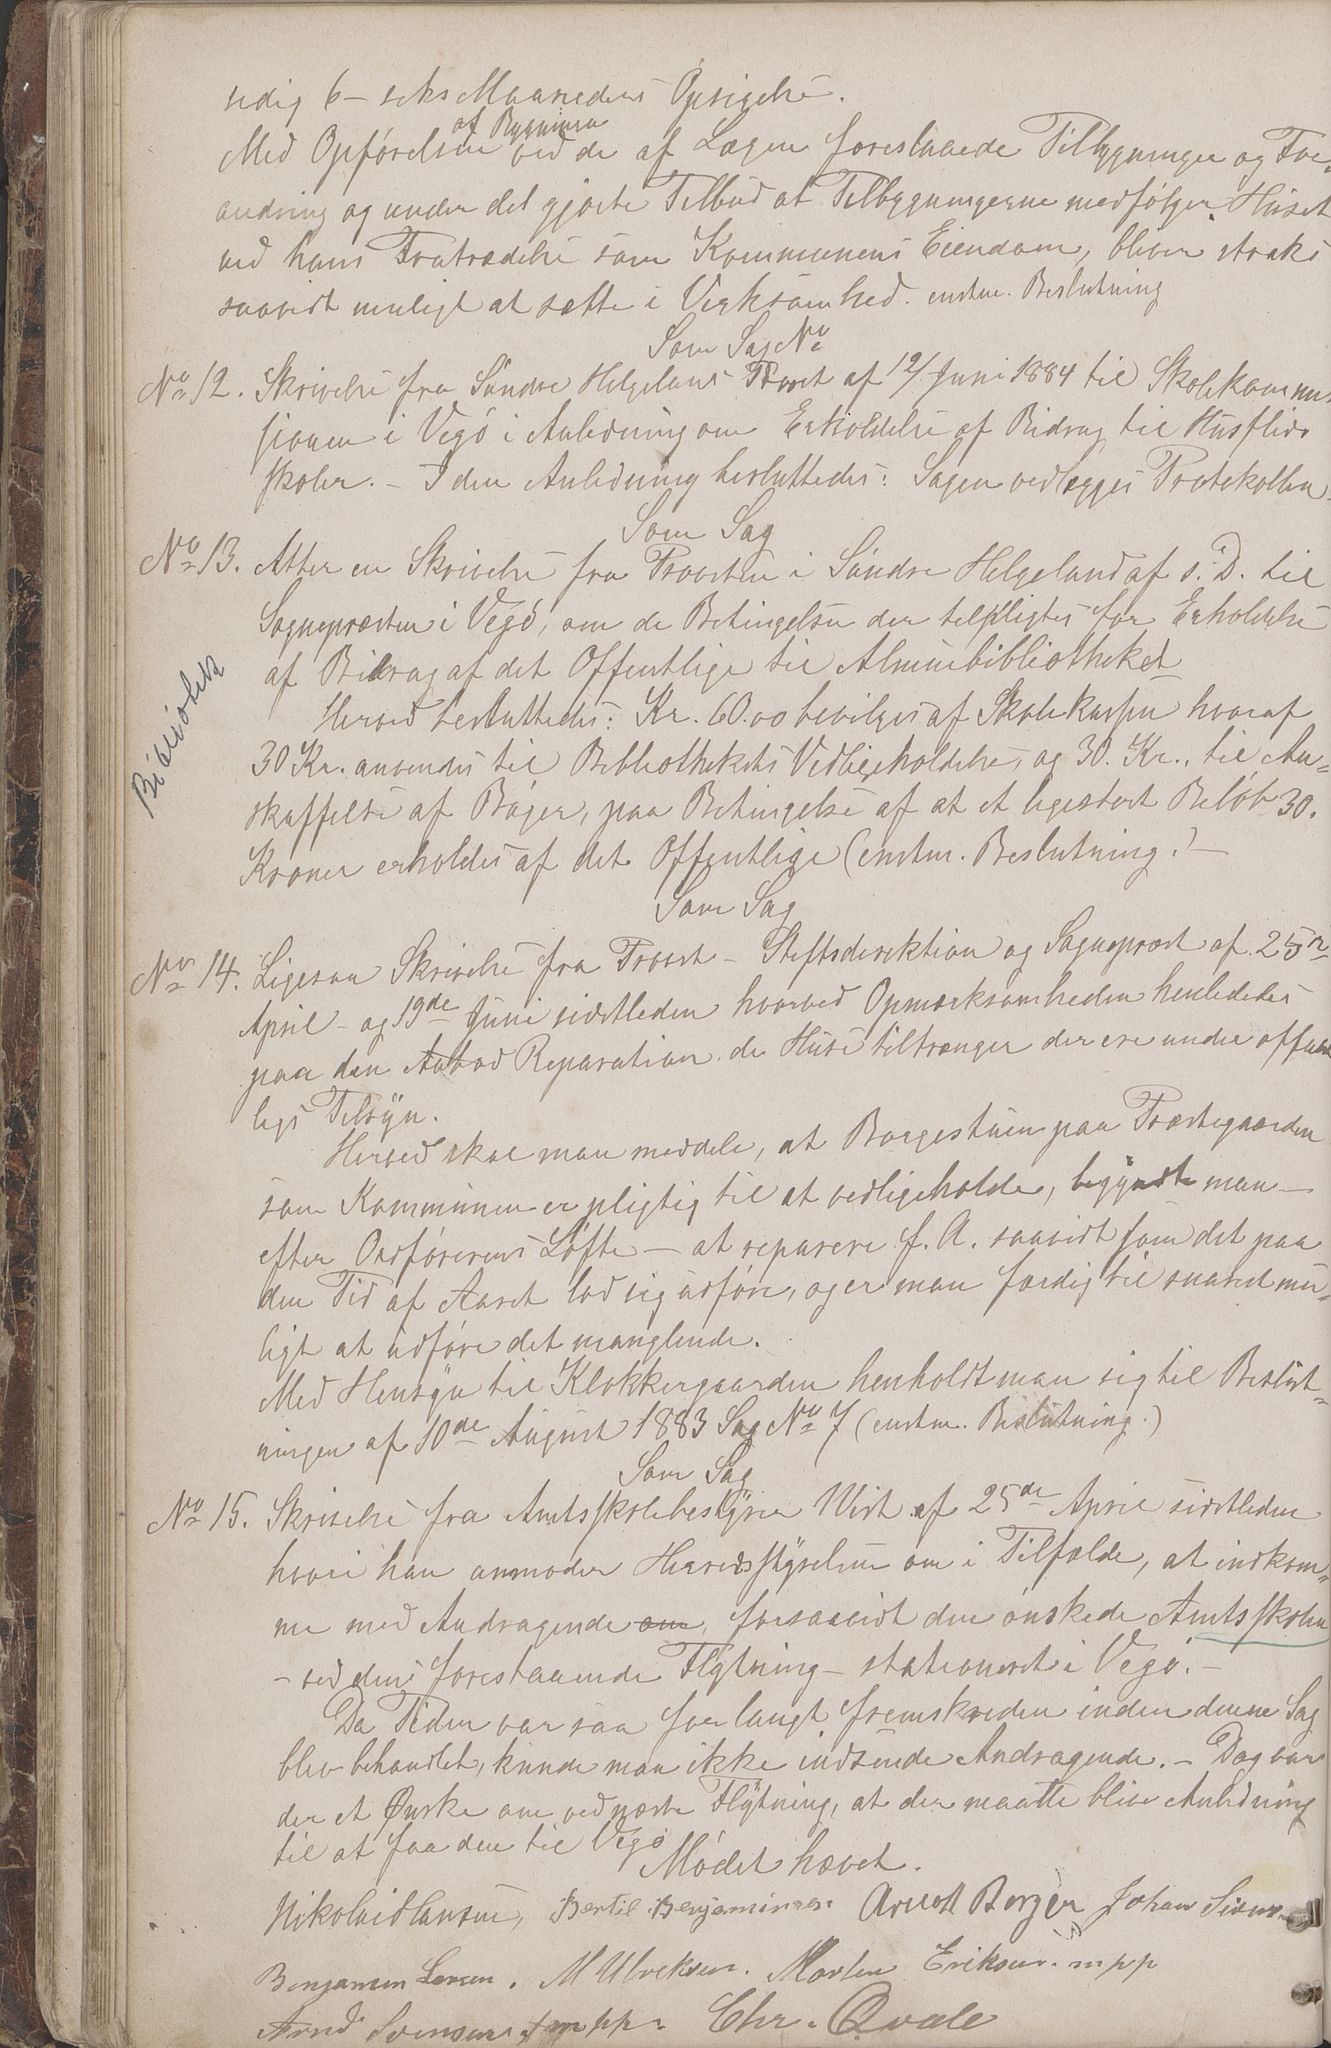 sidig 6 – seks Maaneders Opsigelse.
af Bygningen
Med Opførelsen ved de af Lægen foreslaaede Tilbygninger og For-
andring og under det gjorte Tilbud at Tilbygningerne medfølger Huset
ved hans Fratrædelse som Kommunens Eiendom, bliver straks
saavidt muligt at sætte i Virksomhed. enstm. Beslutning
Som Sag No
No 12. Skrivelse fra Søndre Helgelans Provst af 12/ Juni 1884 til Skolekommis
sionen i Vegø i Anledning om Erholdelse af Bidrag til Husflids
skoler. – I den Anledning besluttedes: Sagen vedlægges Protokollen.
Som Sag
No 13. Atter en Skrivelse fra Provsten i Søndre Helgeland af s. D. til
Sognepræsten i Vegø, om de Betingelser der for Erholdelse
af Bidrag af det Offentlige til Almuebibliotheket
Herved besluttedes: Kr. 60.00 bevilges af Skolekassen hvoraf
Bibliothek
30 Kr. anvendes til Bibliothekets Vedligeholdelse, og 30. Kr., til An-
skaffelse af Bøger, paa Betingelse af at et ligestort Beløb 30.
Kroner erholdes af det Offentlige (enstm. Beslutning.) –
Som Sag
No 14. Ligesaa Skrivelse fra Provst – Stiftsdirektion og Sognepræst af 25de
April – og 19de Juni sidstleden hvorved Opmærksomheden henledes
paa den Reparation de Huse tiltrænger der ere under offent
ligs Tilsyn.
Herved skal man meddele, at Borgestuen paa Præstegaarden
som Kommunen er pligtig til at vedligeholde, begyndte man –
efter Ordførerens Løfte – at reparere f. A. saavidt som det paa
den Tid af Aaret lod sig udføre, og er man færdig til snarest mu-
ligt at udføre det manglende.
Med Hensyn til Klokkergaarden henholdt man sig til Beslut-
ningen af 10de August 1883 Sag No 7 (enstm. Beslutning.)
Som Sag
No 15. Skrivelse fra Amtsskolebestyrer Wist af 25de April sidstleden
hvori han anmoder Herredsstyrelsen om i Tilfælde, at indkom-
me med Andragende om, forsaavidt den ønskede Amtsskolen
– ved dens forestaaende Flytning – stationeret i Vegø. –
Da Tiden var saa for langt fremskreden inden denne Sag
blev behandlet, kunde man ikke indsende Andragende. – Dog var
der et Ønske om ved næste Flytning, at der maatte blive Anledning
til at faa den til Vegø
Mødet hævet.
Nikolai Hansen, Bertil Benjaminsen Arnt Borgen Johan Sivers.
Benjamin Larsen. M Ulriksen. Morten Eriksen. m p p
Arnd Svensen m pp. Chr. Qvale